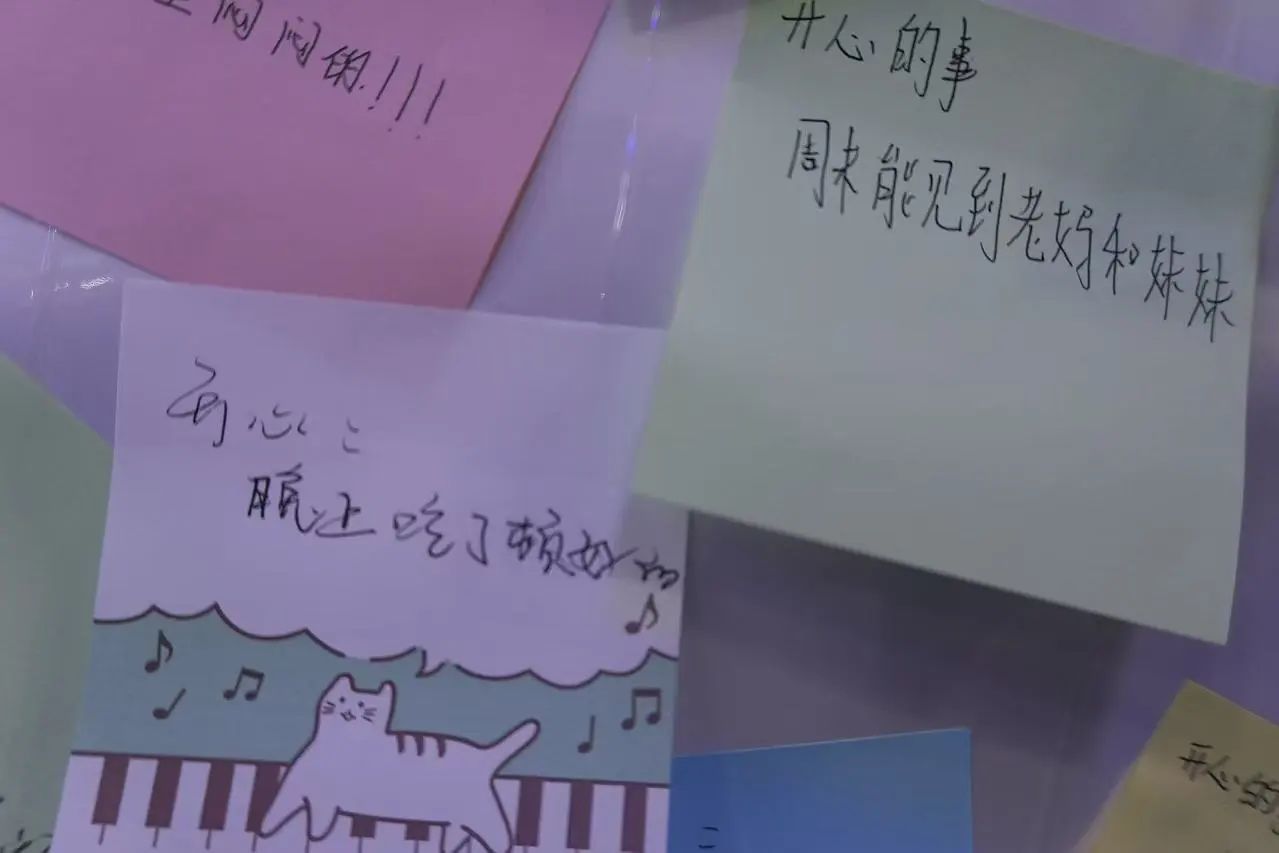 闷闷的!!!
开心的事
周末能见到老妈和妹妹
开心:
晚上吃了顿好的
开心的